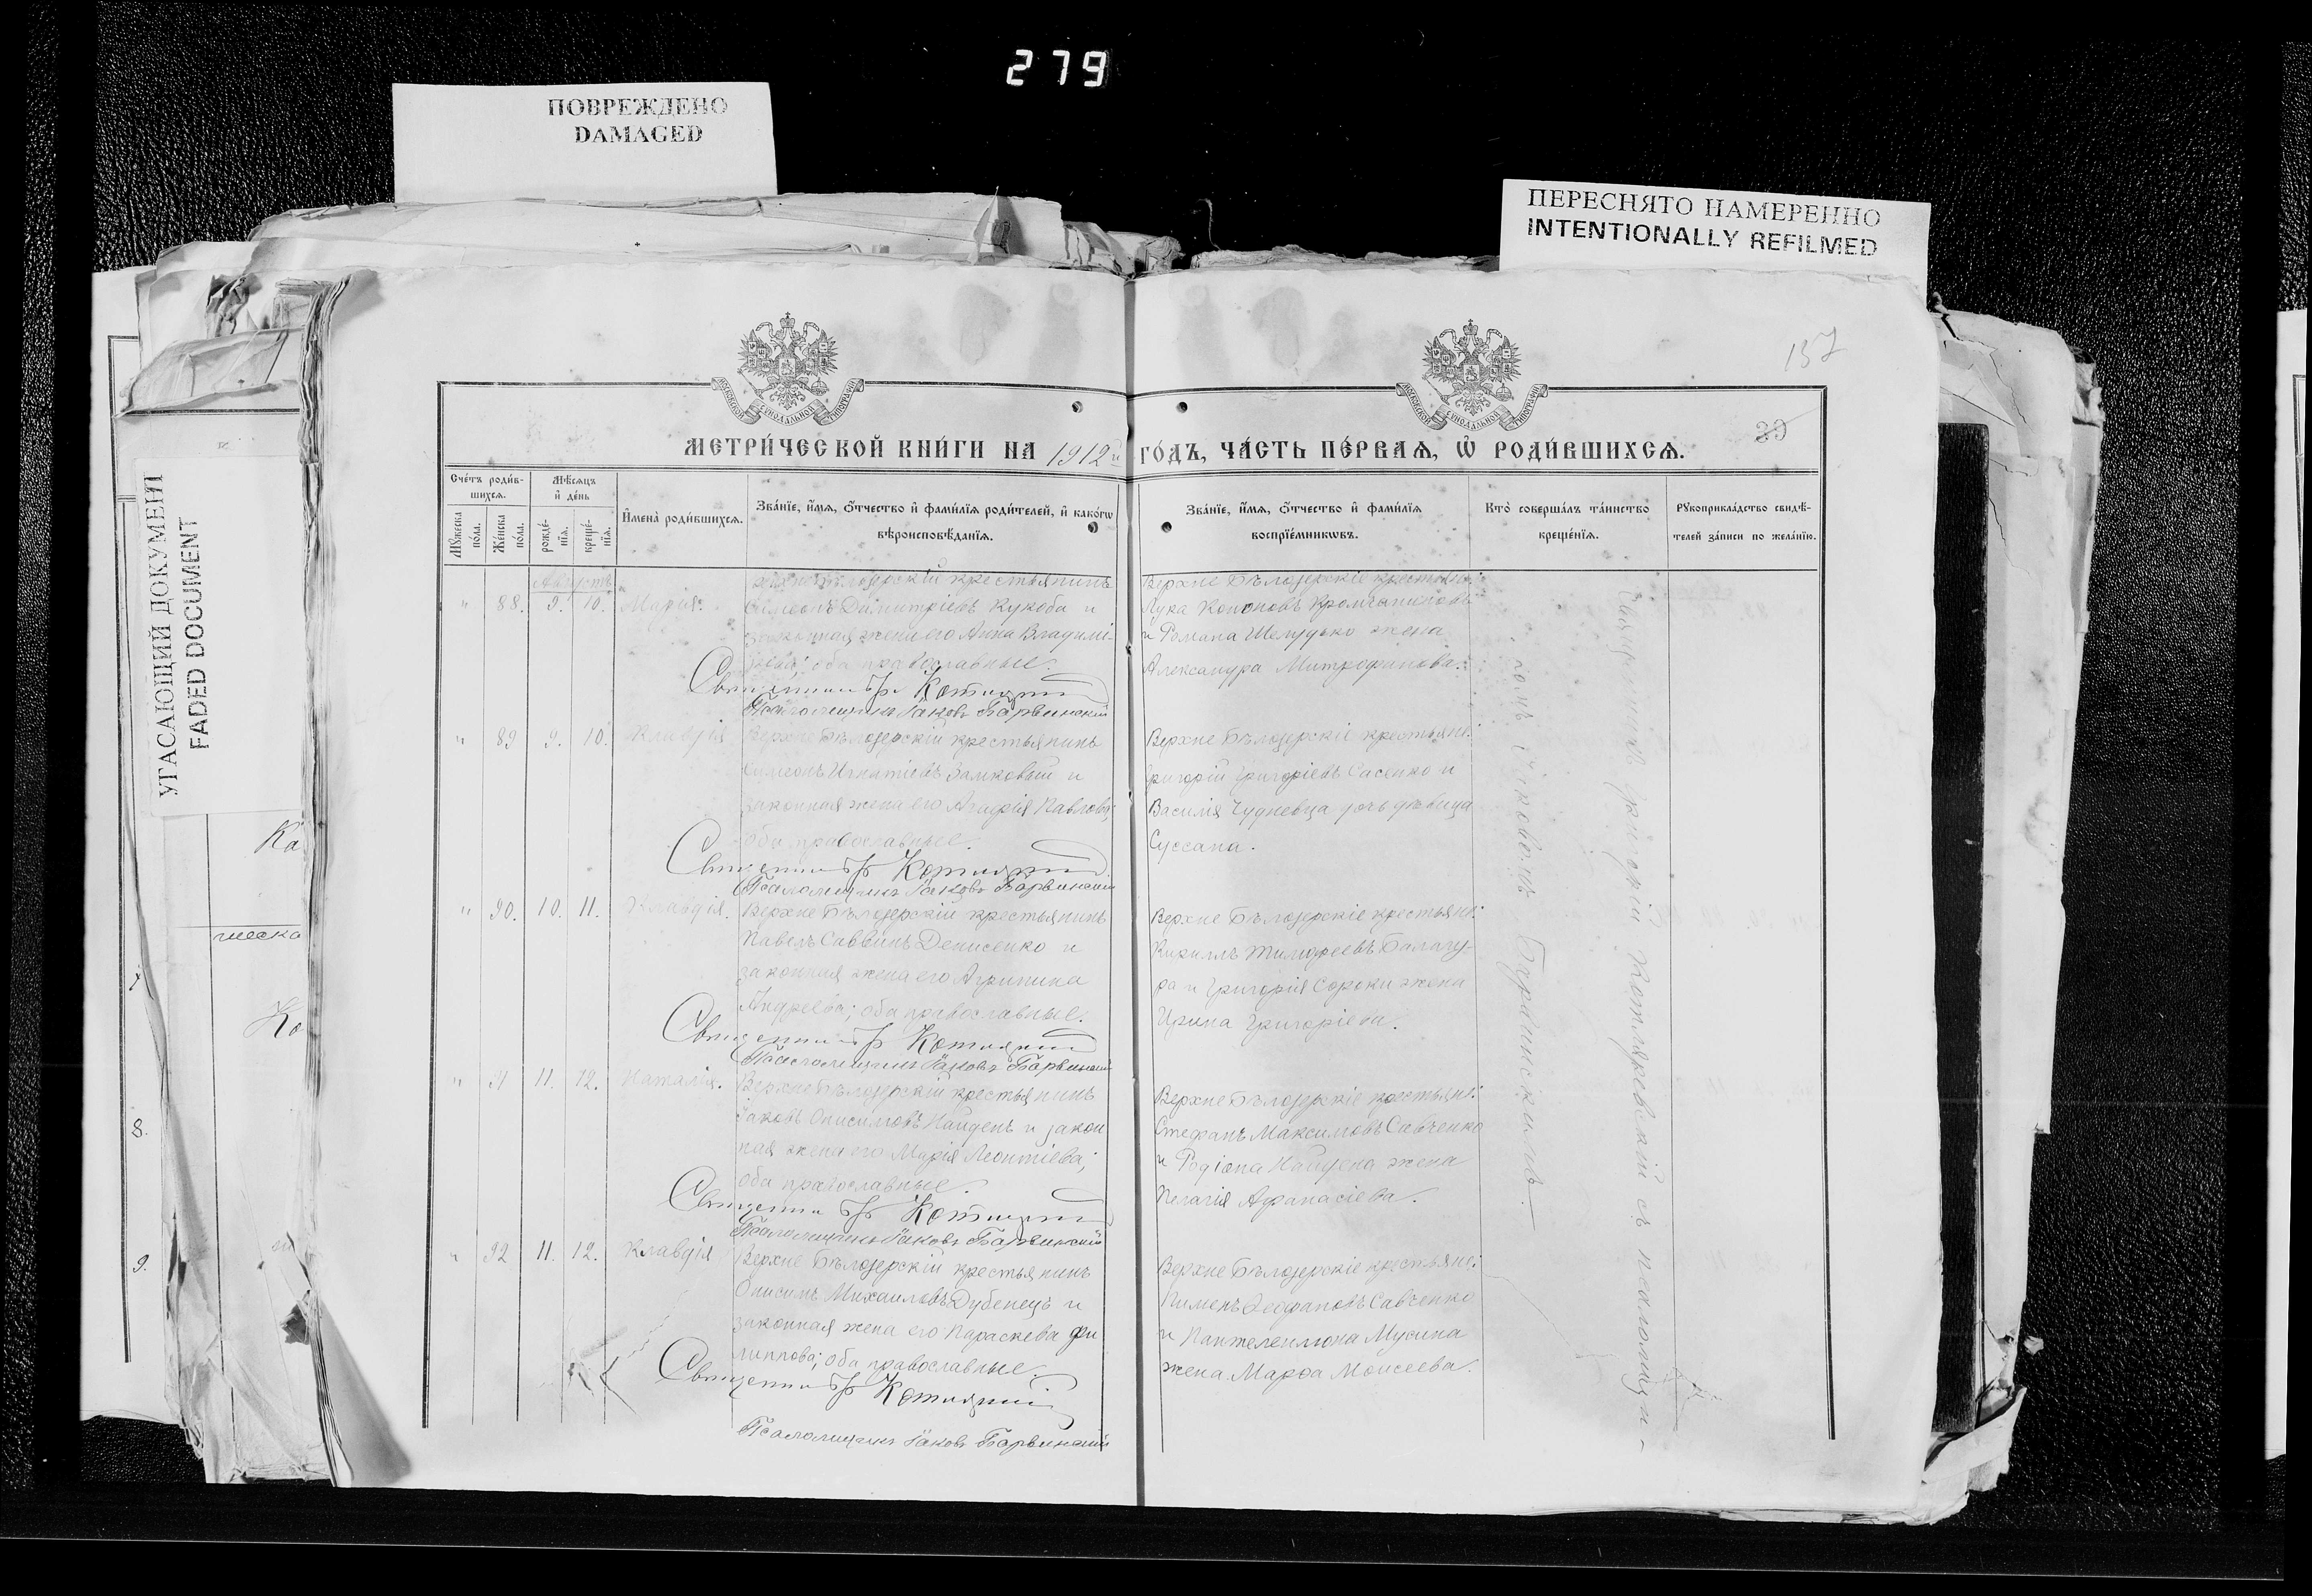 279
ПОВРЕЖДЕНО
DAMAGED
ПЕРЕСНЯТО НАМЕРЕННО
INTENTIONALLY REFILMED
УГАСАЮЩИЙ ДОКУМЕНТ
FADED DOCUMENT
157
39
МЕТРИ́ЧЕСКОЙ КНИ́ГИ НА 1912й ГО́ДЪ, ЧА́СТЬ ПЕ́РВАѦ, Ѡ РОДИ́ВШИХСѦ.
Сче́тъ роди́в-
шихсѧ.
Мꙋ́жеска по́ла.
Же́нска по́ла.
Мѣ́сѧцъ
и де́нь
рожде́-
нїѧ.
креще́-
нїѧ.
Имена̀ роди́вшихсѧ.
Зва́нїе, и́мѧ, ѻ́тчество и фами́лїѧ роди́телей, и како́гѡ
вѣроисповѣ́данїѧ.
Зва́нїе, и́мѧ, ѻ́тчество и фами́лїѧ
воспрїе́мникѡвъ.
Кто̀ соверша́лъ та́инство
креще́нїѧ.
Рꙋкоприкла́дство свидѣ́-
телей за́писи по жела́нїю.
Августъ
" 88. 9. 10. Марія.
крестьянинъ
Симеонъ Димитріевъ Кукоба и
законная жена его Анна Владимі-
рова; оба православные.
Священникъ Гр. Котляревскій
Псаломщикъ Іаковъ Барвинскій
Верхне Бѣлозерскіе крестьяне:
Лука Кононовъ
и Романа Шелудько жена
Александра Митрофанова.
" 89 9. 10. Клавдія
Верхне Бѣлозерскій крестьянинъ
Симеонъ Игнатіевъ Замковый и
законная жена его Агафія Павлова;
оба православные.
Священникъ Гр. Котляревскій
Псаломщикъ Іаковъ Барвинскій
Верхне Бѣлозерскіе крестьяне:
Григорій Григоріевъ Сасенко и
Василія Чудневца дочь дѣвица
Суссана.
" 90. 10. 11. Клавдія.
Верхне Бѣлозерскій крестьянинъ
Павелъ Саввинъ Денисенко и
законная жена его Агрипина
Андреева; оба православные.
Священникъ Гр. Котляревскій
Псаломщикъ Іаковъ Барвинскій
Верхне Бѣлозерскіе крестьяне:
Кириллъ Тимофеевъ Балагу-
ра и Григорія Сороки жена
Ирина Григоріева.
" 91 11. 12. Наталія.
Верхне Бѣлозерскій крестьянинъ
Іаковъ Онисимовъ Найденъ и закон
ная жена его Марія Леонтіева;
оба православные.
Священникъ Гр. Котляревскій
Псаломщикъ Іаковъ Барвинскій
Верхне Бѣлозерскіе крестьяне:
Стефанъ Максимовъ Савченко
и Родіона Найдена жена
Пелагія Афанасіева.
" 92 11. 12. Клавдія
Верхне Бѣлозерскій крестьянинъ
Онисимъ Михаиловъ Дубенецъ и
законная жена его Параскева Фи
липпова; оба православные.
Священникъ Гр. Котляревскій
Псаломщикъ Іаковъ Барвинскій
Верхне Бѣлозерскіе крестьяне:
Пименъ Савченко
и Пантелеимона Мусина
жена Марѳа Моисеева.
Священникъ Григорій Котляревскій съ псаломщи-
комъ Іаковомъ Барвинскимъ.
Ка
ческа
Ко
8.
9.